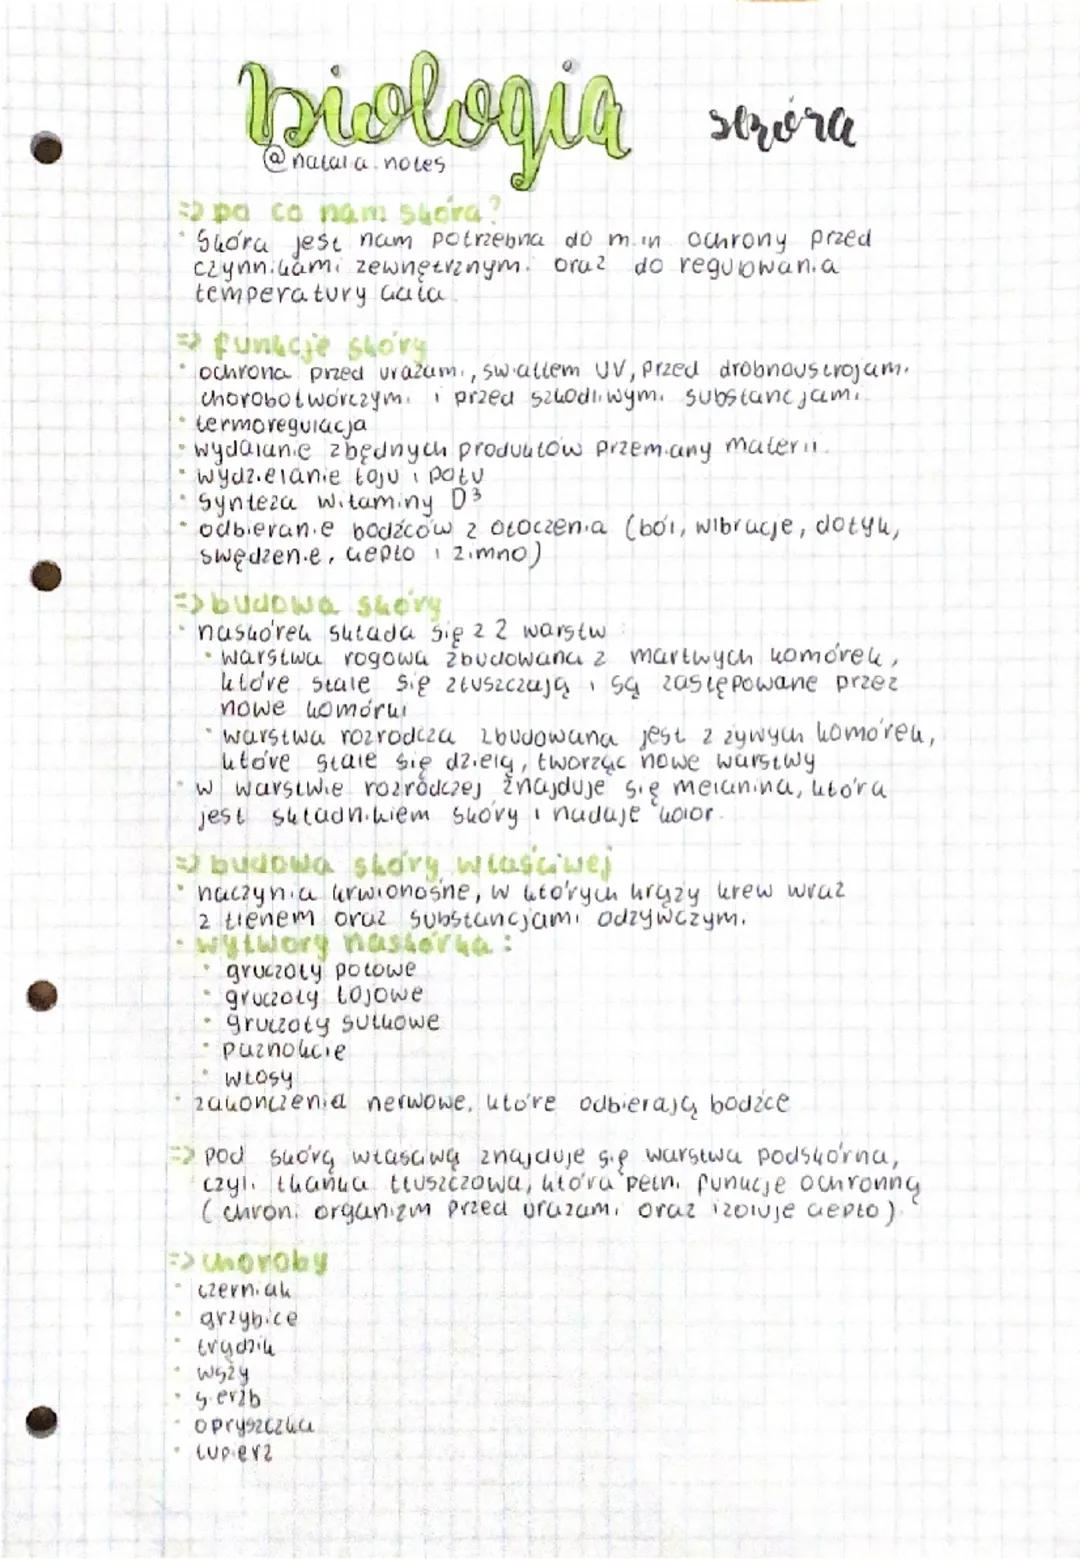 biologia skóra
@natala.notes
=> po co nam skóra?
• Skóra jest nam potrzebna do m.in ochrony przed
czynnikami zewnętrznymi oraz do regulowania
temperatury ciała.
=> funkcje skóry
• ochrona przed urazami, światłem UV, przed drobnoustrojami
chorobotwórczymi i przed szkodliwymi substancjami
• termoregulacja
• wydalanie zbędnych produktów przemiany materii.
• wydzielanie łoju i potu
• synteza witaminy D3
• odbieranie bodźców z otoczenia (ból, wibracje, dotyk,
swędzenie, ciepło i zimno)
=> budowa skóry
• naskórek składa się z 2 warstw:
• warstwa rogowa zbudowana z martwych komórek,
które stale się złuszczają i są zastępowane przez
nowe komórki
• warstwa rozrodcza zbudowana jest z żywych komórek,
które stale się dzielą, tworząc nowe warstwy
• w warstwie rozródczej znajduje się melanina, która
jest składnikiem skóry i nadaje kolor.
=> budowa skóry właściwej
• naczynia krwionośne, w których krąży krew wraz
z tlenem oraz substancjami odżywczymi
• wytwory naskórka:
• gruczoły potowe
• gruczoły łojowe
• gruczoły sutkowe
• paznokcie
• włosy
• zakończenia nerwowe, które odbierają bodźce
=> pod skórą właściwą znajduje się warstwa podskórna,
czyli tkanka tłuszczowa, która pełni funkcje ochronną
(chroni organizm przed urazami oraz izoluje ciepło).
=> choroby
• czerniak
• grzybice
• trądzik
• wszy
• świerzb
• opryszczka
• łupież